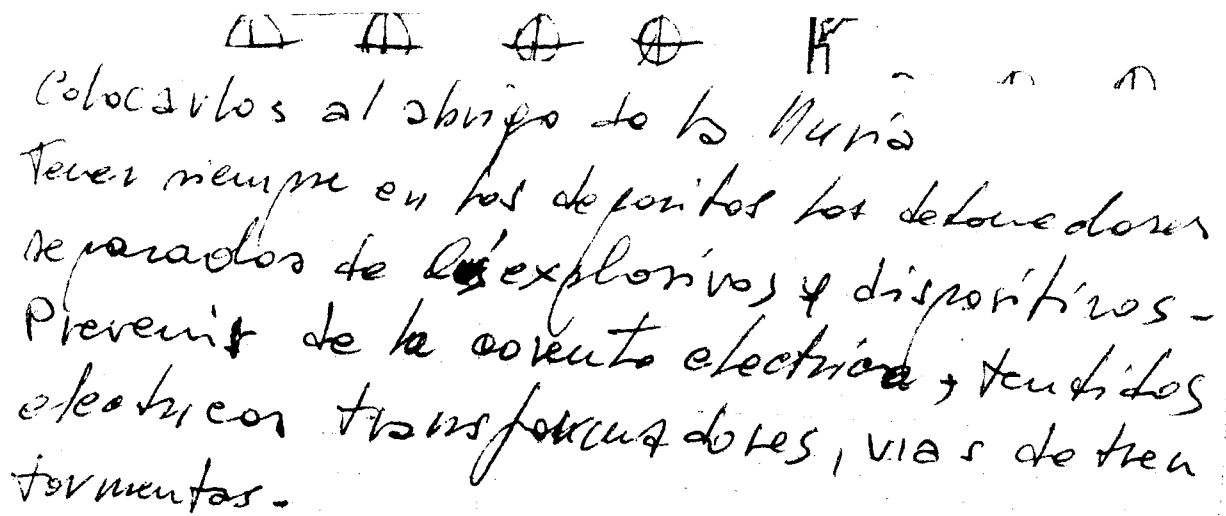 Colocarlos al abrigo de la lluvia
Tener siempre en los depositos los detonadores
separados de los explosivos y dispositivos-
Prevenir de la corriente electrica, tendidos
electricos transformadores, vias de tren
tormentas.-